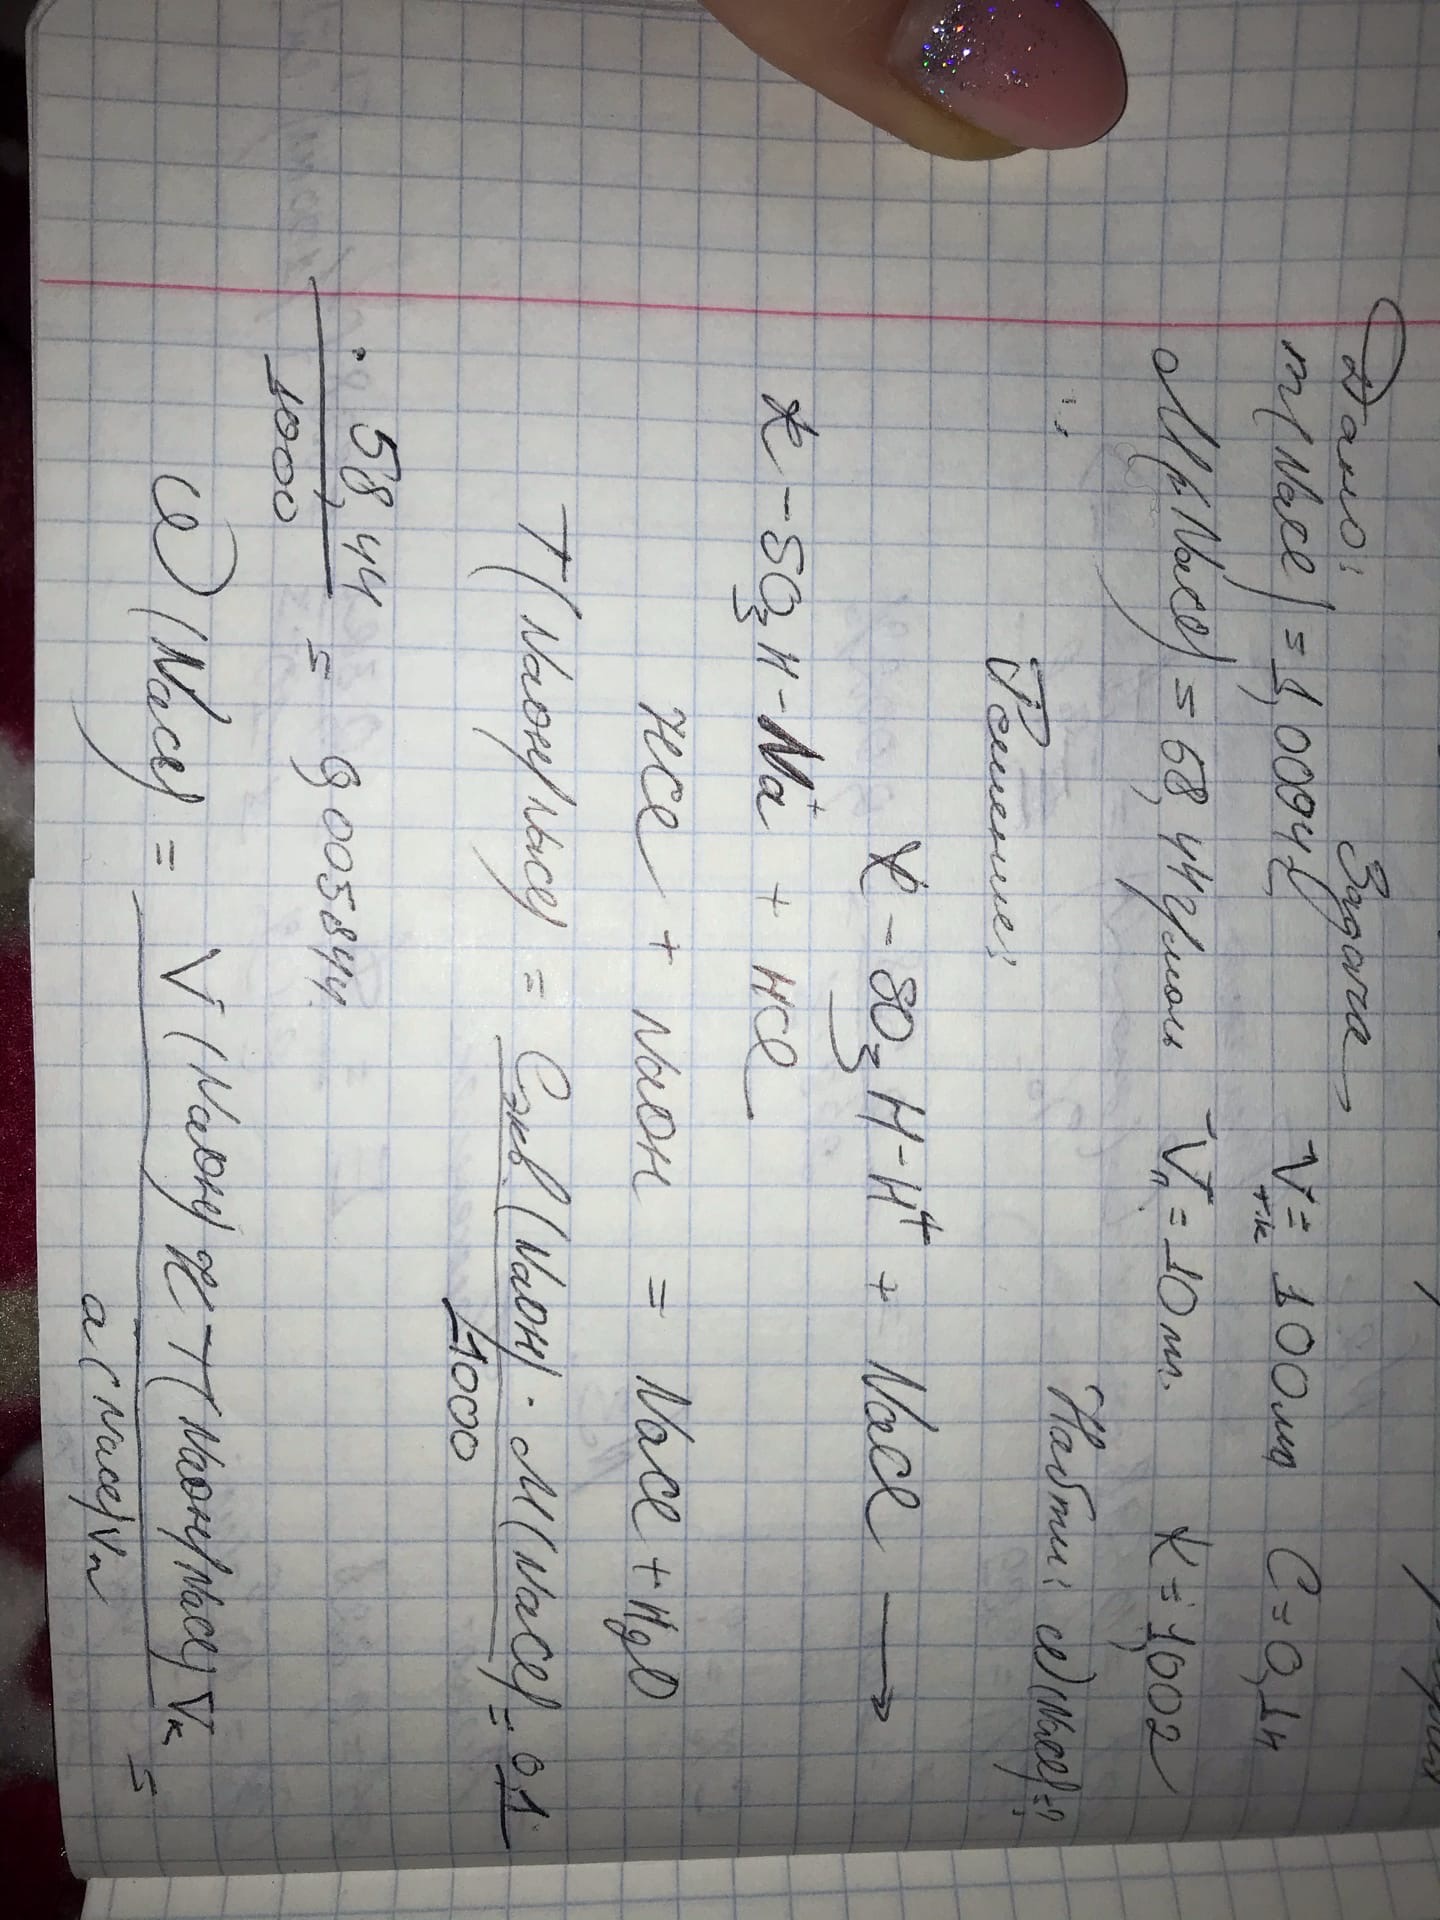 Задача
Дано:
m(NaCl) = 1,0094г V т.к = 100мл C = 0,1н
M(NaCl) = 58,44г/моль Vп = 10мл. K = 1,002
Найти: ω(NaCl) = ?
Решение:
R - SO3H - H⁺ + NaCl →
R - SO3H - Na⁺ + HCl
HCl + NaOH = NaCl + H2O
T(NaOH/NaCl) = Cэкв.(NaOH) · M(NaCl) / 1000 = 0,1
· 58,44 / 1000 = 0,005844.
ω(NaCl) = V(NaOH) K T(NaOH/NaCl) Vк / a(NaCl) Vп =